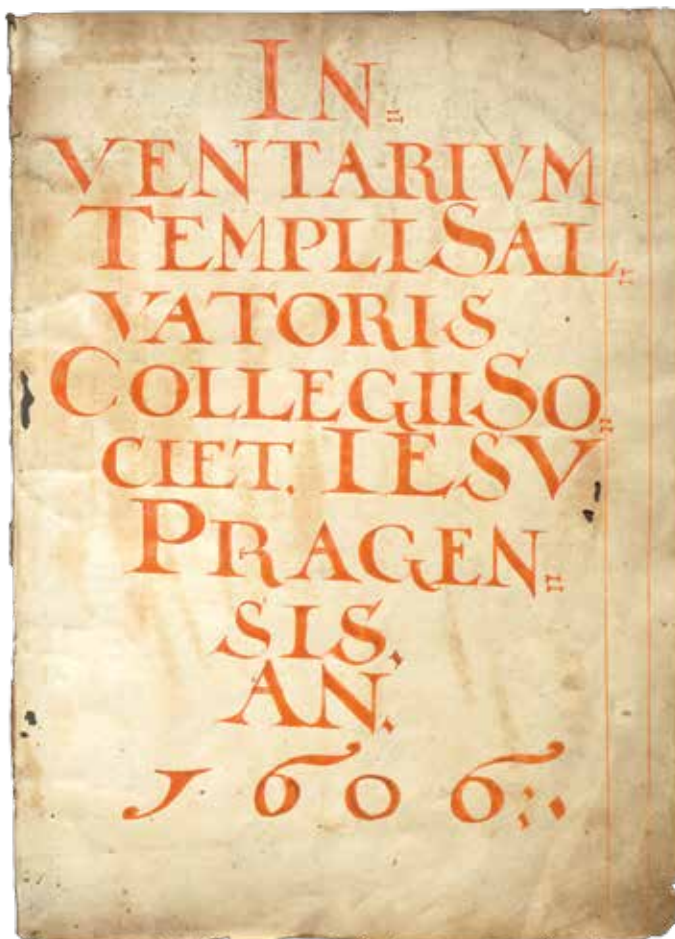 IN=
VENTARIVM
TEMPLI SAL=
VATORIS
COLLEGII SO=
CIET. IESV
PRAGEN=
SIS.
AN.
1606:.